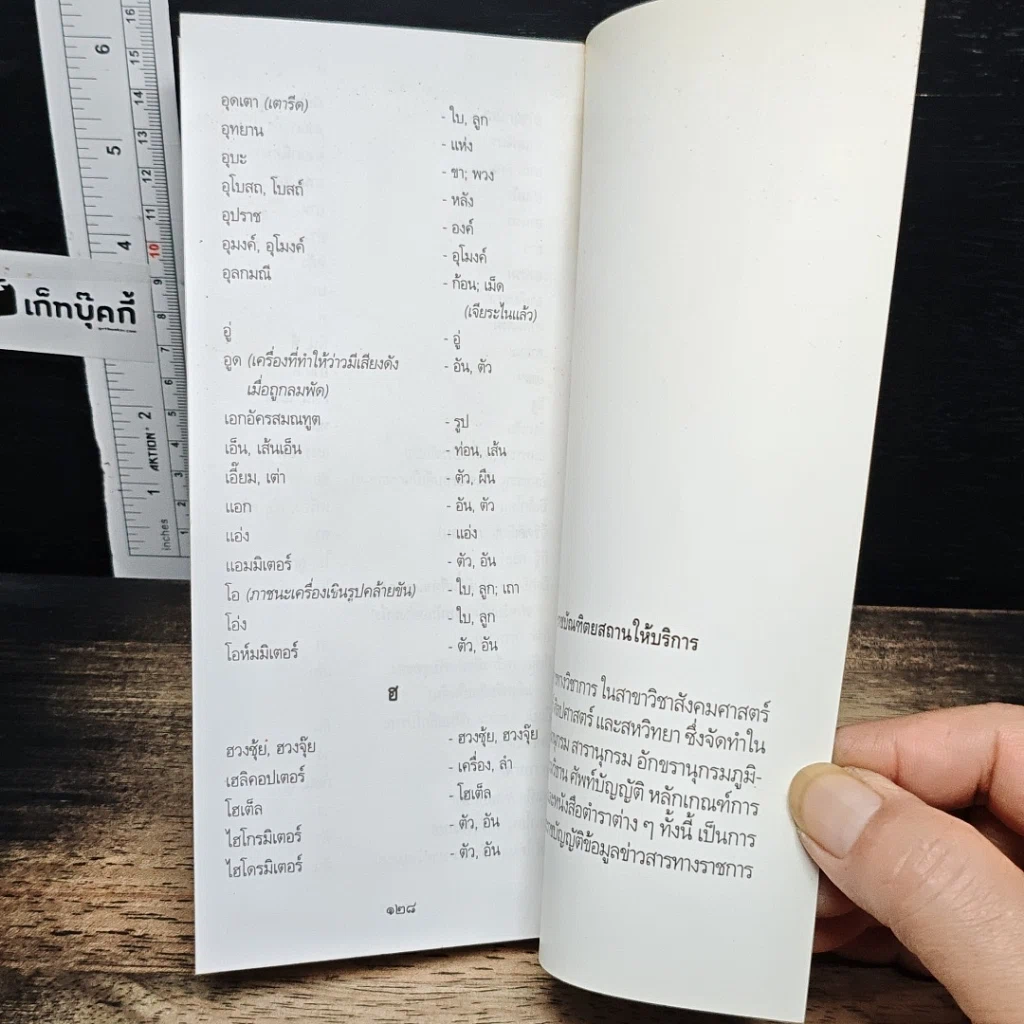 อุดเตา (เตารีด) - ใบ, ลูก
อุทยาน - แห่ง
อุบะ - ขา; พวง
อุโบสถ, โบสถ์ - หลัง
อุปราช - องค์
อุมงค์, อุโมงค์ - อุโมงค์
อุลกมณี - ก้อน; เม็ด
(เจียระไนแล้ว)
อู่ - อู่
อูด (เครื่องที่ทำให้ว่าวมีเสียงดัง - อัน, ตัว
เมื่อถูกลมพัด)
เอกอัครสมณทูต - รูป
เอ็น, เส้นเอ็น - ท่อน, เส้น
เอี๊ยม, เต่า - ตัว, ผืน
แอก - อัน, ตัว
แอ่ง - แอ่ง
แอมมิเตอร์ - ตัว, อัน
โอ (ภาชนะเครื่องเขินรูปคล้ายขัน) - ใบ, ลูก; เถา
โอ่ง - ใบ, ลูก
โอห์มมิเตอร์ - ตัว, อัน
ฮ
ฮวงซุ้ย, ฮวงจุ๊ย - ฮวงซุ้ย, ฮวงจุ๊ย
เฮลิคอปเตอร์ - เครื่อง, ลำ
โฮเต็ล - โฮเต็ล
ไฮโกรมิเตอร์ - ตัว, อัน
ไฮโดรมิเตอร์ - ตัว, อัน
๑๒๘
บัณฑิตยสถานให้บริการ
ทางวิชาการ ในสาขาวิชาสังคมศาสตร์
ศิลปศาสตร์ และสหวิทยา ซึ่งจัดทำใน
สารานุกรม อักขรานุกรมภูมิ-
ศัพท์บัญญัติ หลักเกณฑ์การ
หนังสือตำราต่าง ๆ ทั้งนี้ เป็นการ
บัญญัติข้อมูลข่าวสารทางราชการ
เก็ทบุ๊คกี้
6 5 4 2 1
16 15 14 13 12 11 10 9 8 7 6 5 4 3 2 1
AKTION
inches